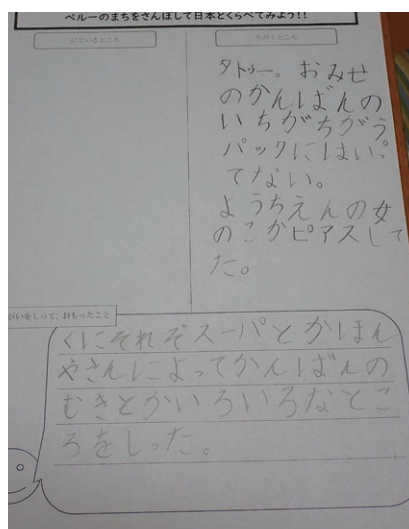 ペルーのまちをさんぽして日本とくらべてみよう!!
にているところ
ちがうところ
タトゥー。おみせ
のかんばんの
いちがちがう
パックにはいっ
てない。
ようちえんの女
のこがピアスして
た。
いをしって、おもったこと
くにそれぞスーパとかほん
やさんによってかんばんの
むきとかいろいろなとこ
ろをしった。